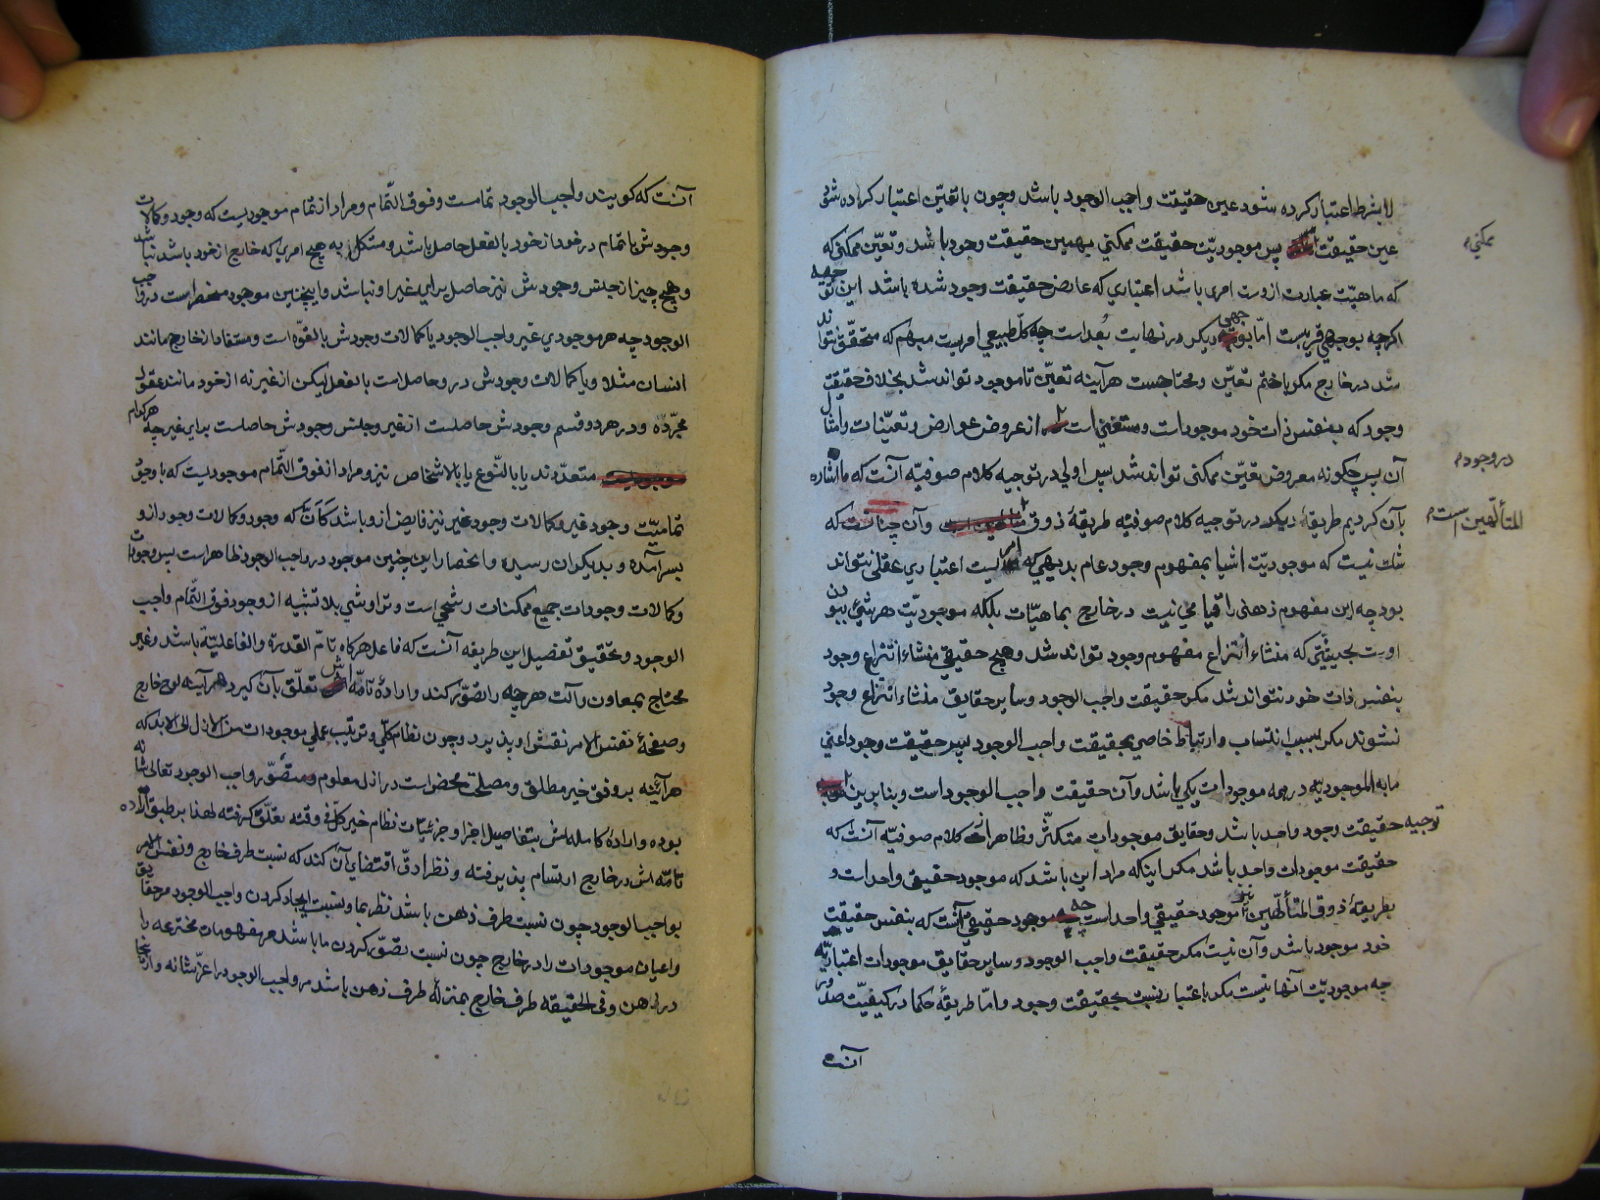 لابشرط اعتبار کرده شود عین حقیقت واجب الوجود باشد وچون باتعیّن اعتبار کرده شود
عین حقیقت پس موجودیّت حقیقت ممکنی بهمین حقیقت وجود باشد وتعیّن ممکنی که
ممکنی
که ماهیّت عبارت ازوست امری باشد اعتباری که عارض حقیقت وجود شده باشد این توجیه
اکرچه بوجهی قریبست امّا بوجهی دیکر در نهایت بُعد است چه کلّ طبیعی امریست مبهم که متحقّق نتواند
شد در خارج مکر با ختم تعیّن ومحتاجست هرآینه تعیّن تا موجود تواند شد بخلاف حقیقت
وجود که بنفس ذات خود موجود است ومستغنی است از عروض عوارض وتعیّنات وامثال
آن پس چکونه معروض تعیّن ممکنی تواند شد پس اولی در توجیه کلام صوفیّه آنست که ما اشاره
در وجود
بآن کردیم طریقهٔ دیکر در توجیه کلام صوفیّه طریقهٔ ذوق وآن چنانست که
المتألّهین است
شک نیست که موجودیّت اشیا بمفهوم وجود عام بدیهی که امریست اعتباری عقلی نتواند
بود چه این مفهوم ذهنی را قیامی نیست در خارج بماهیّات بلکه موجودیّت هر شیئ ببودن
اوست بحیثیّتی که منشاء انتزاع مفهوم وجود تواند شد وهیچ حقیقتی منشاء انتزاع وجود
بنفس ذات خود نتواند شد مکر حقیقت واجب الوجود وسایر حقایق منشاء انتزاع وجود
نشوند مکر بسبب انتساب وارتباط خاصی بحقیقت واجب الوجود پس حقیقت وجود اعنی
مابه الموجودیّه در همه موجودات یکی باشد وآن حقیقت واجب الوجود است وبنابرین
توجیه حقیقت وجود واحد باشد وحقایق موجودات متکثّر وظاهراً کلام صوفیّه آنست که
حقیقت موجودات واحد باشد مکر اینکه مراد این باشد که موجود حقیقی واحد است و
بطریقهٔ ذوق المتألّهین نیز موجود حقیقی واحد است چه موجود حقیقی آنست که بنفس حقیقت
خود موجود باشد وآن نیست مکر حقیقت واجب الوجود وسایر حقایق موجودات اعتباریّه
چه موجودیّت آنها نیست مکر باعتبار نسبت بحقیقت وجود وامّا طریقهٔ حکما در کیفیّت صدور
آنست
آنست که کویند واجب الوجود تمامست وفوق التّمام ومراد از تمام موجودیست که وجود وکمالات
وجودش بتمام در خود از خود بالفعل حاصل باشد ومستکمل به هیچ امری که خارج از خود باشد نباشد
وهیچ چیز از جنس وجودش نیز حاصل برای غیر او نباشد واینچنین موجود منحصر است در واجب
الوجود چه هر موجودی غیر واجب الوجود یا کمالات وجودش بالقوّه است ومستفاد از خارج مانند
انسان مثلا ویا کمالات وجودش درو حاصل است بالفعل لیکن از غیر نه از خود مانند عقول
مجرّده ودر هر دو قسم وجودش حاصلست از غیر وجنس وجودش حاصلست برای غیر چه هرکدام
متعدّدند یا بالنّوع یا بالاشخاص نیز ومراد از فوق التّمام موجودیست که با وجود
تمامیّت وجود غیر وکمالات وجود غیر نیز فایض از و باشد کأنّه که وجود وکمالات وجود از و
بسر آمده وبدیکران رسیده وانحصار این چنین موجود در واجب الوجود ظاهر است پس وجودات
وکمالات وجودات جمیع ممکنات رشحی است وتراوشی بلا تشبیه از وجود فوق التّمام واجب
الوجود وتحقیق تفصیل این طریقه آنست که فاعل هرکاه تامّ القدرة والفاعلیّة باشد وغیر
محتاج بمعاون وآلت هرچه را تصوّر کند وارادهٔ تامّه اش تعلّق بآن کیرد هرآینه لوح خارج
وصفحهٔ نفس الامر نقش او پذیرد وچون نظام کلّی وترتیب عملی موجودات من الازل الی الابد که
هرآینه بر وفق خیر مطلق ومصلحت محض است در ازل معلوم ومتصوّر واجب الوجود تعالی شأنه
بوده وارادهٔ کامله اش بتفاصیل اجزا وجزئیّات نظام خیر کلّ فی وقته تعلّق کرفته لهذا بر طبق اراده
تامّه اش در خارج ارتسام پذیرفته ونظر ادقّ اقتضای آن کند که نسبت ظرف خارج ونفس الامر
بواجب الوجود چون نسبت ظرف ذهن باشد نظر بما ونسبت ایجاد کردن واجب الوجود مر حقایق
واعیان موجودات را در خارج چون نسبت تصوّر کردن ما باشد مر مفهومات مخترعه را
در ذهن وفی الحقیقه ظرف خارج بمنزلهٔ ظرف ذهن باشد مر واجب الوجود را عزّ شانه وازینجا